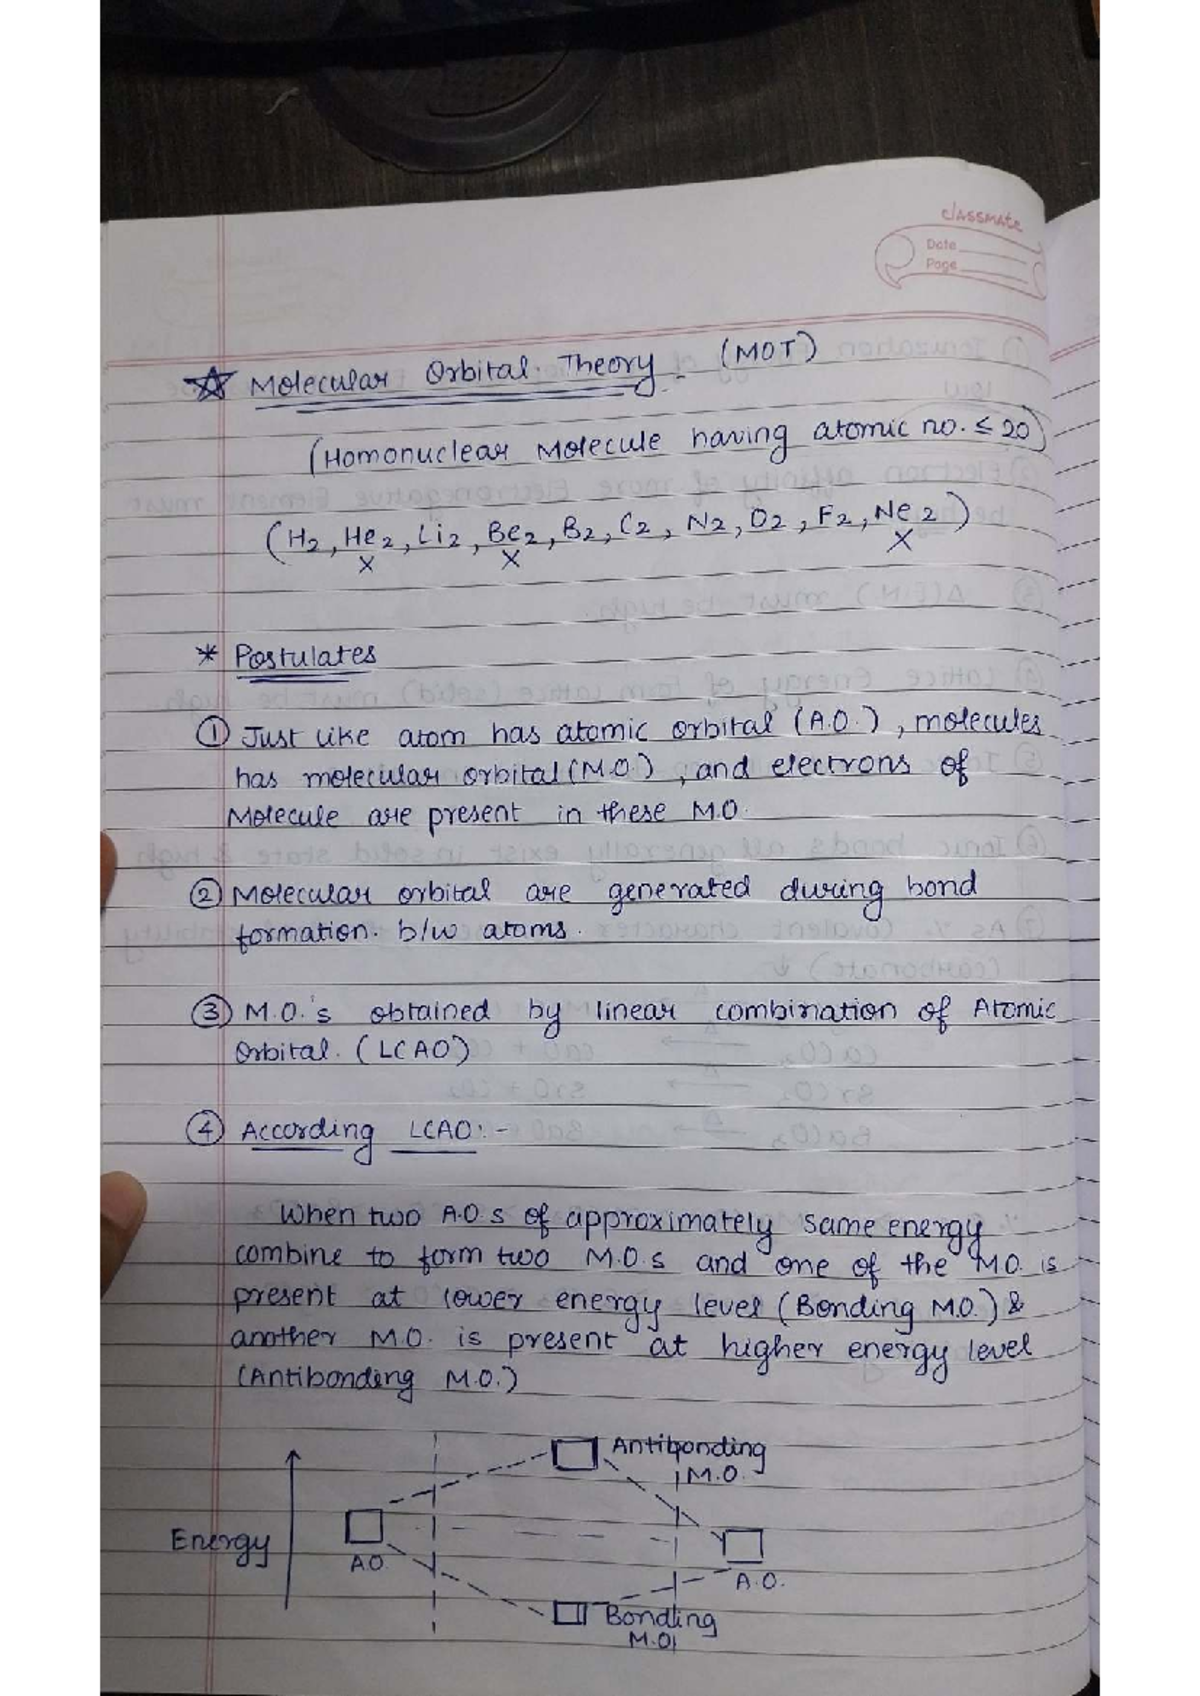 classmate
Date
Page
Molecular Orbital Theory (MOT)
(Homonuclear Molecule having atomic no. ≤ 20)
(H2, He2, Li2, Be2, B2, C2, N2, O2, F2, Ne2)
x x x
* Postulates
① Just like atom has atomic orbital (A.O.), molecules
has molecular orbital (M.O.), and electrons of
Molecule are present in these M.O.
② Molecular orbital are generated during bond
formation. b/w atoms.
③ M.O.'s obtained by linear combination of Atomic
Orbital. (LCAO)
④ According LCAO:-
When two A.O.s of approximately same energy
combine to form two M.O.s and one of the M.O. is
present at lower energy level (Bonding M.O.) &
another M.O. is present at higher energy level
(Antibonding M.O.)
Antibonding
M.O.
Energy
A.O.
A.O.
Bonding
M.O